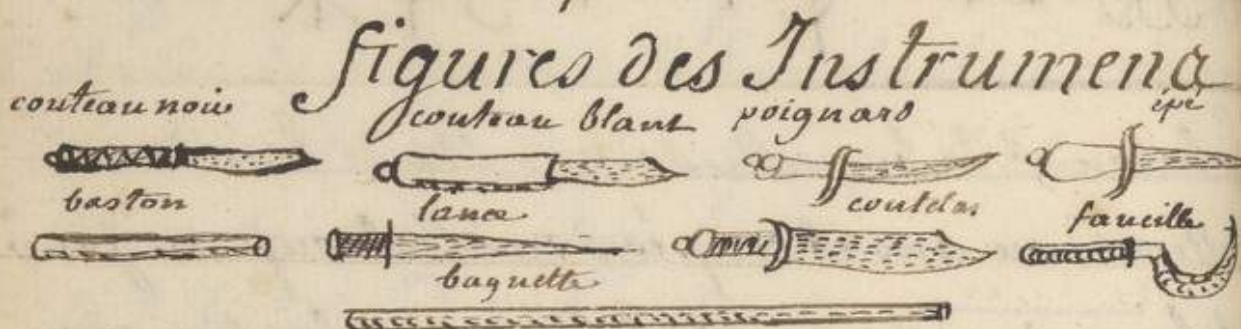 figures des Instrumens
couteau noir couteau blant poignard épé
baston lance coutelas faucille
baguette